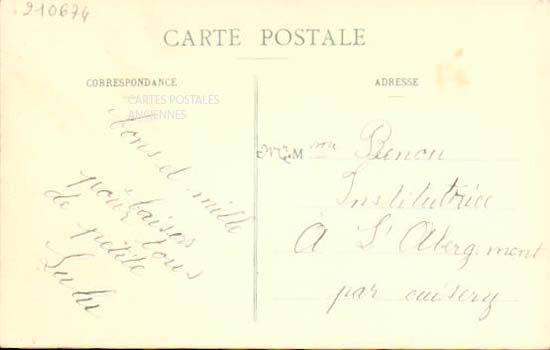 210674
CARTE POSTALE
CORRESPONDANCE
ADRESSE
CARTES POSTALES
ANCIENNES
Bons et mille
baisers
pour tous
de petite
Lulu
M me Benon
Institutrice
A L'Abergement
par cuisery